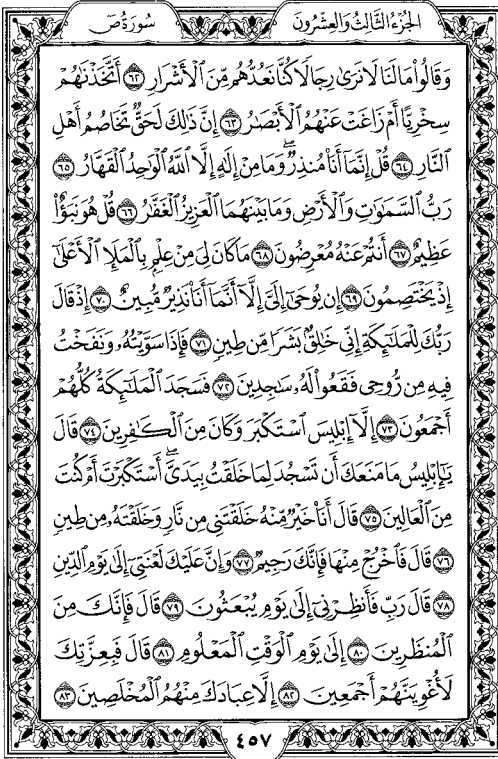 الجزء الثالث والعشرون
سورة ص
وَقَالُوا۟ مَا لَنَا لَا نَرَىٰ رِجَالًا كُنَّا نَعُدُّهُم مِّنَ ٱلْأَشْرَارِ ٦٢ أَتَّخَذْنَٰهُمْ
سِخْرِيًّا أَمْ زَاغَتْ عَنْهُمُ ٱلْأَبْصَٰرُ ٦٣ إِنَّ ذَٰلِكَ لَحَقٌّ تَخَاصُمُ أَهْلِ
ٱلنَّارِ ٦٤ قُلْ إِنَّمَآ أَنَا۠ مُنذِرٌ ۖ وَمَا مِنْ إِلَٰهٍ إِلَّا ٱللَّهُ ٱلْوَٰحِدُ ٱلْقَهَّارُ ٦٥
رَبُّ ٱلسَّمَٰوَٰتِ وَٱلْأَرْضِ وَمَا بَيْنَهُمَا ٱلْعَزِيزُ ٱلْغَفَّٰرُ ٦٦ قُلْ هُوَ نَبَؤٌا۟
عَظِيمٌ ٦٧ أَنتُمْ عَنْهُ مُعْرِضُونَ ٦٨ مَا كَانَ لِىَ مِنْ عِلْمٍۭ بِٱلْمَلَإِ ٱلْأَعْلَىٰٓ
إِذْ يَخْتَصِمُونَ ٦٩ إِن يُوحَىٰٓ إِلَىَّ إِلَّآ أَنَّمَآ أَنَا۠ نَذِيرٌ مُّبِينٌ ٧٠ إِذْ قَالَ
رَبُّكَ لِلْمَلَٰٓئِكَةِ إِنِّى خَٰلِقٌۢ بَشَرًا مِّن طِينٍ ٧١ فَإِذَا سَوَّيْتُهُۥ وَنَفَخْتُ
فِيهِ مِن رُّوحِى فَقَعُوا۟ لَهُۥ سَٰجِدِينَ ٧٢ فَسَجَدَ ٱلْمَلَٰٓئِكَةُ كُلُّهُمْ
أَجْمَعُونَ ٧٣ إِلَّآ إِبْلِيسَ ٱسْتَكْبَرَ وَكَانَ مِنَ ٱلْكَٰفِرِينَ ٧٤ قَالَ
يَٰٓإِبْلِيسُ مَا مَنَعَكَ أَن تَسْجُدَ لِمَا خَلَقْتُ بِيَدَىَّ ۖ أَسْتَكْبَرْتَ أَمْ كُنتَ
مِنَ ٱلْعَالِينَ ٧٥ قَالَ أَنَا۠ خَيْرٌ مِّنْهُ ۖ خَلَقْتَنِى مِن نَّارٍ وَخَلَقْتَهُۥ مِن طِينٍ
٧٦ قَالَ فَٱخْرُجْ مِنْهَا فَإِنَّكَ رَجِيمٌ ٧٧ وَإِنَّ عَلَيْكَ لَعْنَتِىٓ إِلَىٰ يَوْمِ ٱلدِّينِ
٧٨ قَالَ رَبِّ فَأَنظِرْنِىٓ إِلَىٰ يَوْمِ يُبْعَثُونَ ٧٩ قَالَ فَإِنَّكَ مِنَ
ٱلْمُنظَرِينَ ٨٠ إِلَىٰ يَوْمِ ٱلْوَقْتِ ٱلْمَعْلُومِ ٨١ قَالَ فَبِعِزَّتِكَ
لَأُغْوِيَنَّهُمْ أَجْمَعِينَ ٨٢ إِلَّا عِبَادَكَ مِنْهُمُ ٱلْمُخْلَصِينَ ٨٣
٤٥٧